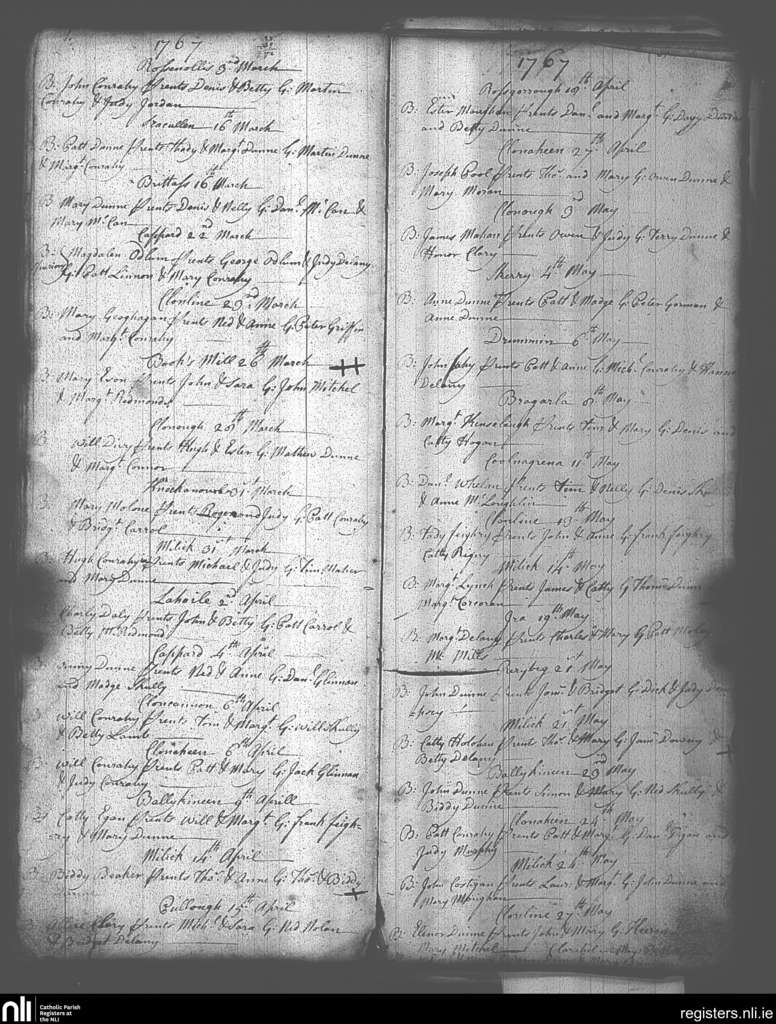 1767
Rossnollis 3rd March
B: John Conrahy Prents Denis & Betty G: Martin
Conrahy & Judy Jordan
16th March
B: Patt Dunne Prents Thady & Margt Dunne G: Martin Dunne
& Margt Conrahy
Brittass 16th March
B: Mary Dunne Prents Denis & Nelly G: Danl McCan &
Mary McCan
Cappard 22nd March
B: Magdalen Odlum Prents George Odlum & Judy Delany
G: Patt Linnon & Mary Conrahy
Clonline 23rd March
B: Mary Geoghagan Prents Ned & Anne G: Peter Griffin
and Margt Conrahy
Book's Mill 26th March
B: Mary Evon Prents John & Sara G: John Mitchel
& Margt Redmonds
Clonough 28th March
B: Will Divy Prents Hugh & Ester G: Mathew Dunne
& Margt Connor
31st March
B: Mary Molone Prents Roger and Judy G: Patt Conrahy
& Bridgt Carrol
Milick 31st March
B: Hugh Conrahy Prents Michael & Judy G: Tim: Maher
and Mary Dunne
Lahoile 2nd April
Charly Daly Prents John & Betty G: Patt Carrol &
Catty
Cappard 4th April
Dunne Prents Ned & Anne G: Danl Glinnan
and Madge Skully
Cloncannon 6th April
Will Conrahy Prents Tim & Margt G: Will Skully
& Betty Lamb
Clonaheen 6th April
B: Will Conrahy Prents Patt & Mary G: Jack Glinnan
& Judy Conrahy
Ballykineen 9th Aprill
B: Catty Egan Prents Will & Margt G: Frank Feigh-
ry & Mary Dunne
Milick 14th April
B: Biddy Beaker Prents Thos & Anne G: Thos & Biddy
Dunne
Cullough 15th April
Clary Prents Michl & Sara G: Ned Nolan
& Bridget Delany
1767
Rossgorrough 18th April
B: Ester Prents Danl and Margt G:
and Betty Dunne
Clonaheen 27th April
B: Joseph Pool Prents Thos and Mary G: Owen Dunne &
Mary Moran
Clonough 3rd May
B: James Mahon Prents Owen & Judy G: Terry Dunne &
Honor Clary
Skerry 4th May
B: Anne Dunne Prents Patt & Madge G: Peter Gorman &
Anne Dunne
Drummin 6th May
B: John Prents Patt & Anne G: Michl Conrahy &
Delany
Bragarla 8th May
B: Margt Kenselaugh Prents Tim & Mary G: Denis and
Catty Hogan
Coolnagrena 11th May
B: Danl Whelan Prents Tim & Nelly G: Denis
& Anne McLoughlin
Clonline 13th May
B: Tady Feighry Prents John & Anne G: Frank Feighry
Catty Rigny
Milick 14th May
B: Margt Lynch Prents James & Catty G: Thomas Dunne
Margt Corcoran
Ira 19th May
B: Margt Delany Prents Charles & Mary G: Patt
Mills
Rerybeg 21st May
B: John Dunne Prents & Bridget G: Dick & Judy
Milick 21st May
B: Catty Holohan Prents Thos & Mary G: Jams Downy &
Betty Delany
Ballykineen 23rd May
B: John Dunne Prents Simon & Mary G: Ned Skully &
Biddy Dunne
Clonaheen 24th May
B: Patt Conrahy Prents Patt & Margt G: Danl and
Judy Murphy
Milick 24th May
B: John Costigan Prents Laur: & Margt G: John Dunne and
Mary
Clonline 27th May
B: Elinor Dunne Prents John & Mary G:
Mary Mitchel
nli
Catholic Parish
Registers at
the NLI
registers.nli.ie